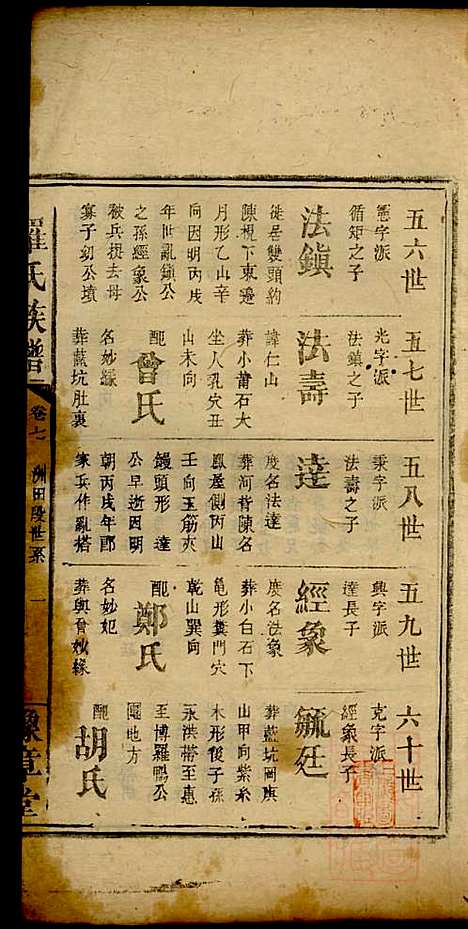 五六世
憲字派
循矩之子
法鎮
徙居雙頭約
陳視下東邊
月形乙山辛
向因明丙戌
年世亂鎮公
之孫經象公
被兵掠去母
寡子幼公墳
五七世
光字派
法鎮之子
法壽
諱仁山
葬小莆石大
坐人孔穴丑
山未向
配曾氏
名妙緣
葬藍坑肚裏
五八世
秉字派
法壽之子
達
度名法達
葬河背陳名
鳳屋側丙山
壬向玉筋夾
饅頭形 達
公早逝因明
朝丙戌年鄙
家兵作亂搭
五九世
興字派
達長子
經象
度名法象
葬小白石下
龜形糞門穴
乾山巽向
配鄭氏
名妙妃
葬與曾妙緣
六十世
克字派
經象長子
毓廷
葬藍坑岡庚
山甲向紫糸
木形後子孫
永洪帶至惠
至博羅鴨公
𡒄地方
配胡氏
羅氏族譜
卷七
洲田段世系
一
豫章堂